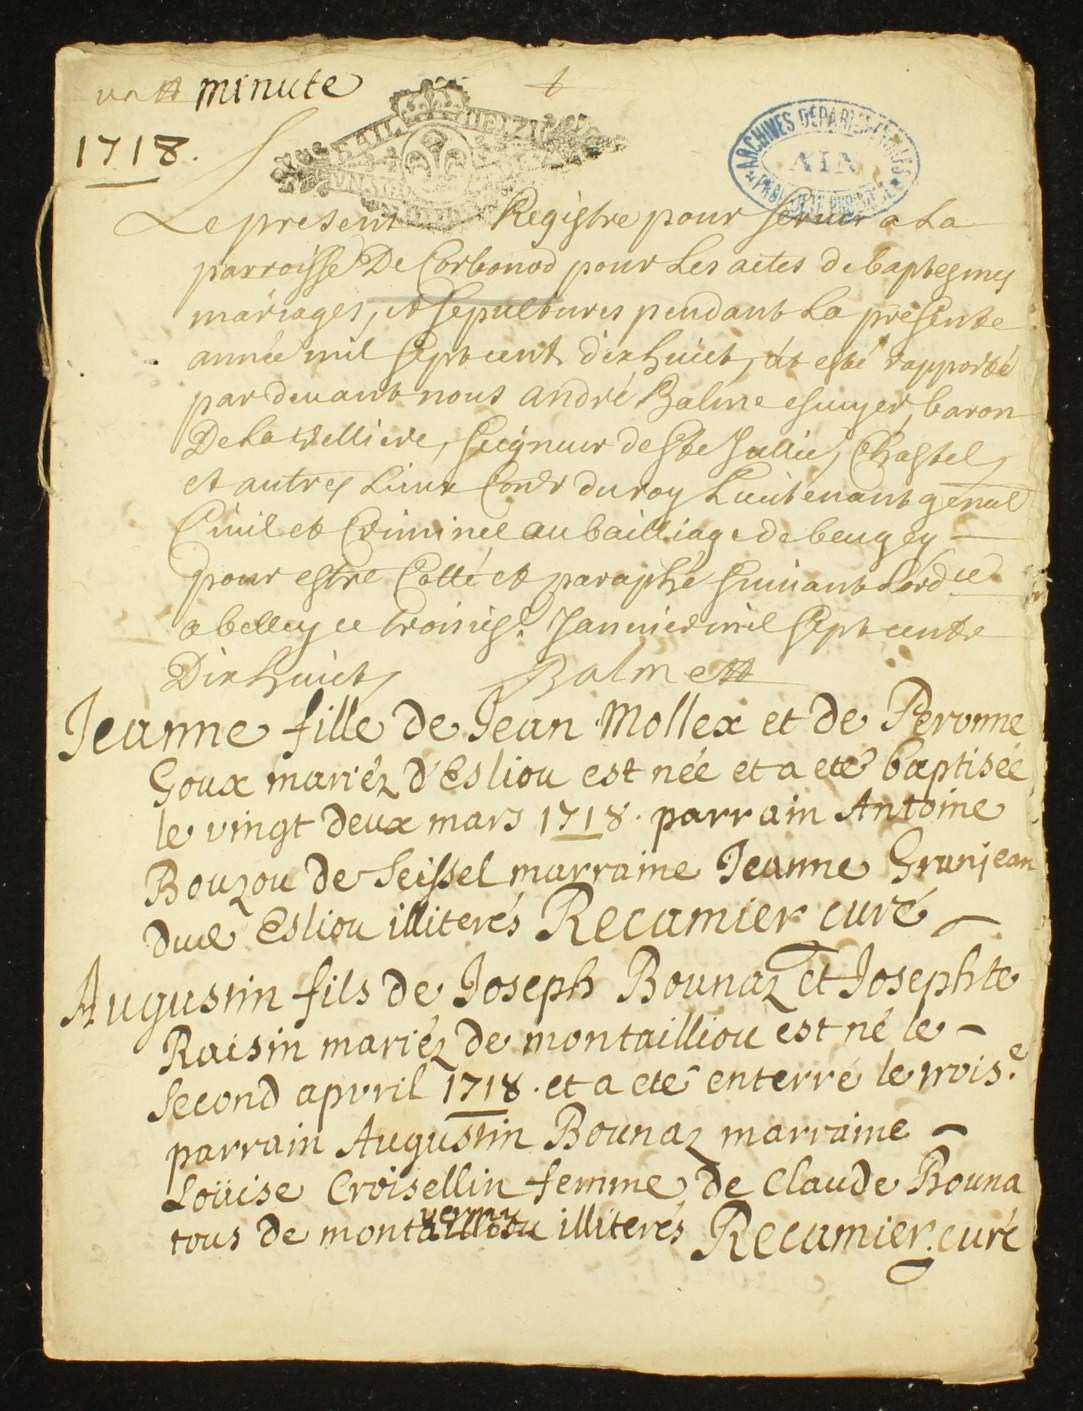 minute
1718.
ARCHIVES DEPARTEMENTALES
AIN
Le present Registre pour servir a La
parroisse De Corbonod pour Les actes de baptesmes
mariages, et sepultures pendant La presente
année mil sept cent dix huict, at esté rapporté
par devant nous andré Balme escuyer, baron
De La velliere, seigneur de Ste Jullie, Chastel
et autres Lieux Coner du roy Lieutenant genal
Civil et Criminel au bailliage de beugey
pour estre Cotté et paraphé suivant Lordce
a belley ce troisies. Janvier mil sept cents
Dix huict Balme
Jeanne fille de Jean Mollex et de Peronne
Goux mariéz d'Esliou est née et a eté baptisée
le vingt deux mars 1718. parrain Antoine
Bouzou de Seissel marraine Jeanne Granjean
Esliou illiterés Recamier curé
Augustin fils de Joseph Bounaz et Josephte
Raisin mariéz de montailliou est né le
second apvril 1718. et a eté enterré le trois.e
parrain Augustin Bounaz marraine
Loüise Croisellin femme de Claude Bouna
tous de illiterés Recamier curé